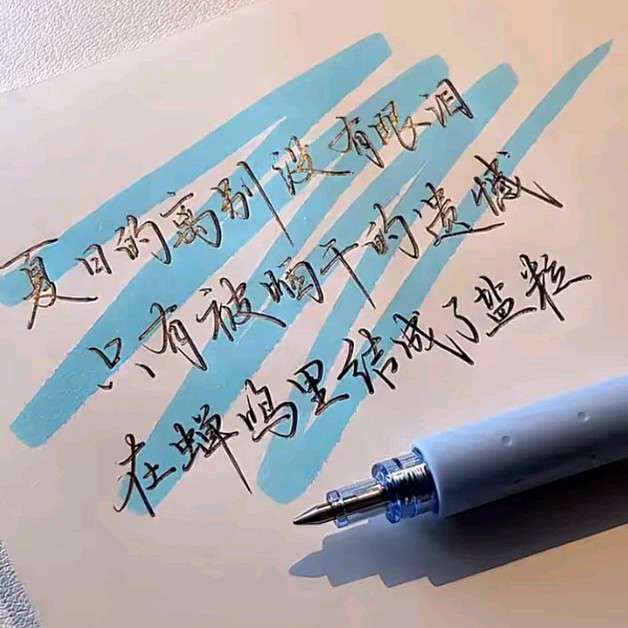 夏日的离别没有眼泪
只有被晒干的遗憾
在蝉鸣里结成了盐粒